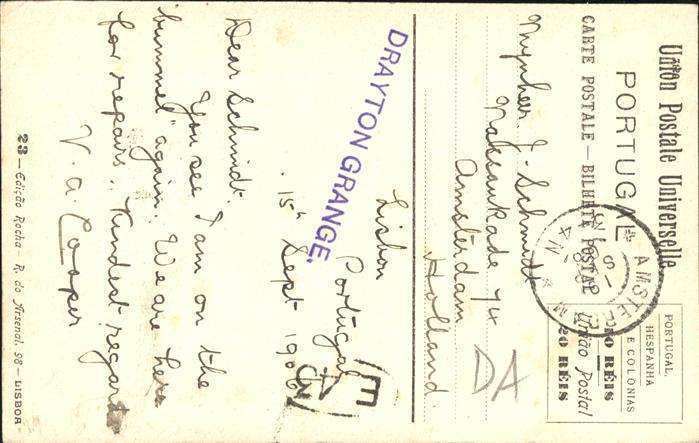 Union Postale Universelle
PORTUGAL
CARTE POSTALE — BILHETE POSTAL
União Postal
PORTUGAL,
HESPANHA
E COLONIAS
10 RÉIS
20 RÉIS
AMSTERDAM
Mynheer J. Schmidt
74
Amsterdam
Holland.
DA
DRAYTON GRANGE.
Lisbon
Portugal
15th Sept 1906
Dear Schmidt.
You see I am on the
"bummel" again. We are here
for repairs. Kindest regards
V. A. Cooper
23 — Edição Rocha — R. do Arsenal, 98 — LISBOA